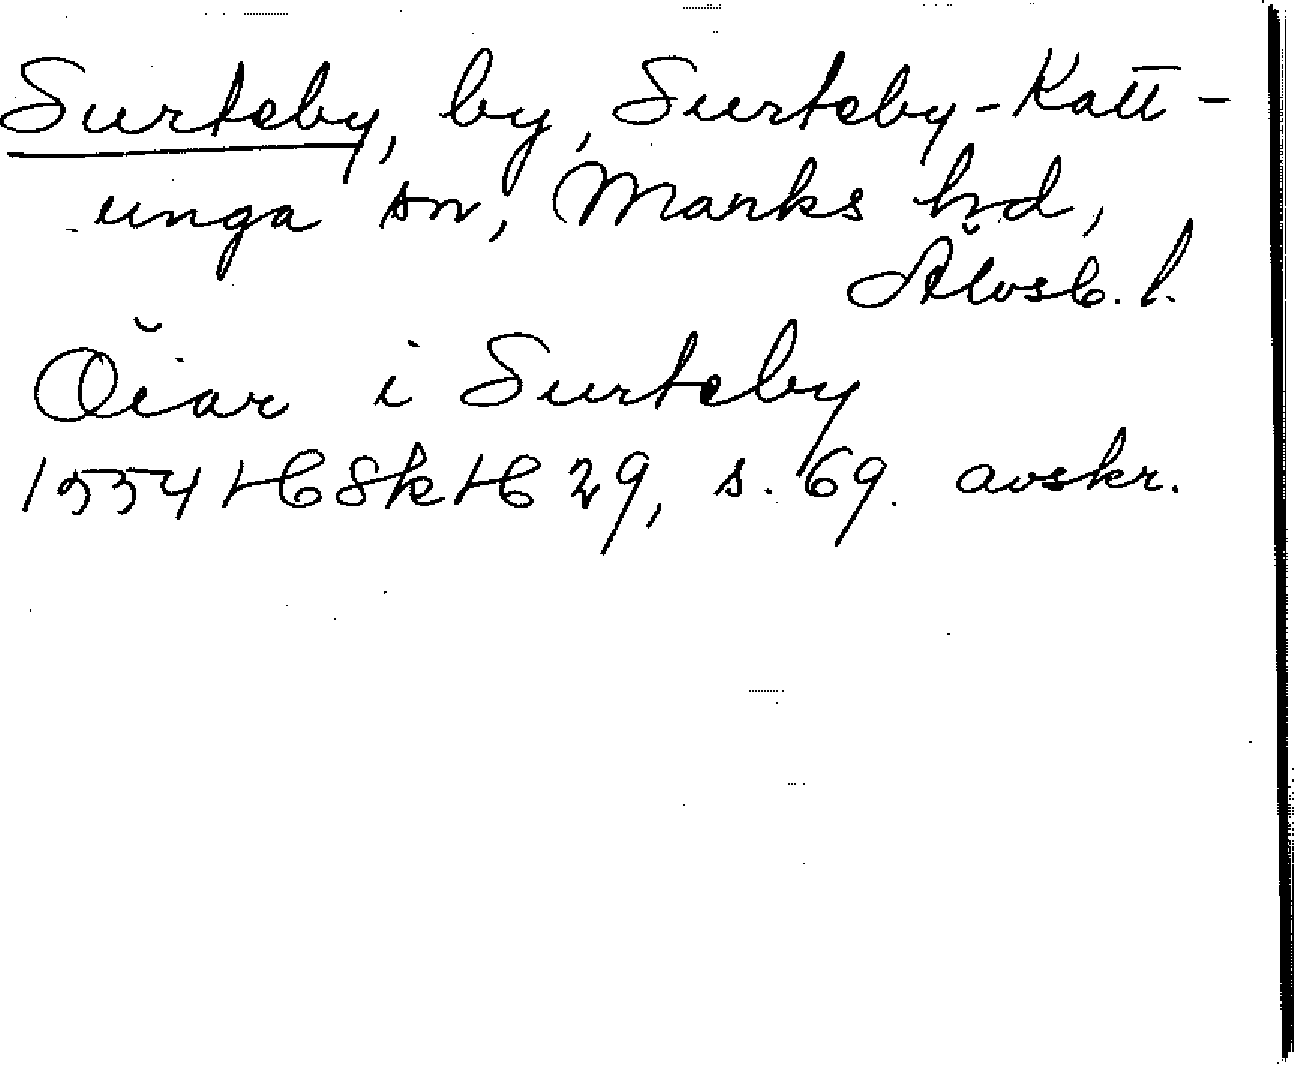 Surteby, by, Surteby-Katt-
unga sn, Marks hd,
Älvsb. l.
Öiar i Surteby
1554 HSkH 29, s. 69. avskr.